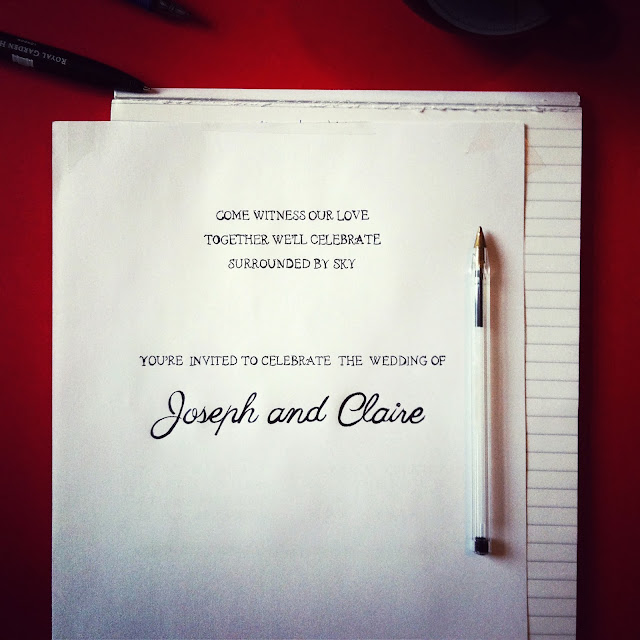 ROYAL GARDEN H
COME WITNESS OUR LOVE
TOGETHER WE'LL CELEBRATE
SURROUNDED BY SKY
YOU'RE INVITED TO CELEBRATE THE WEDDING OF
Joseph and Claire